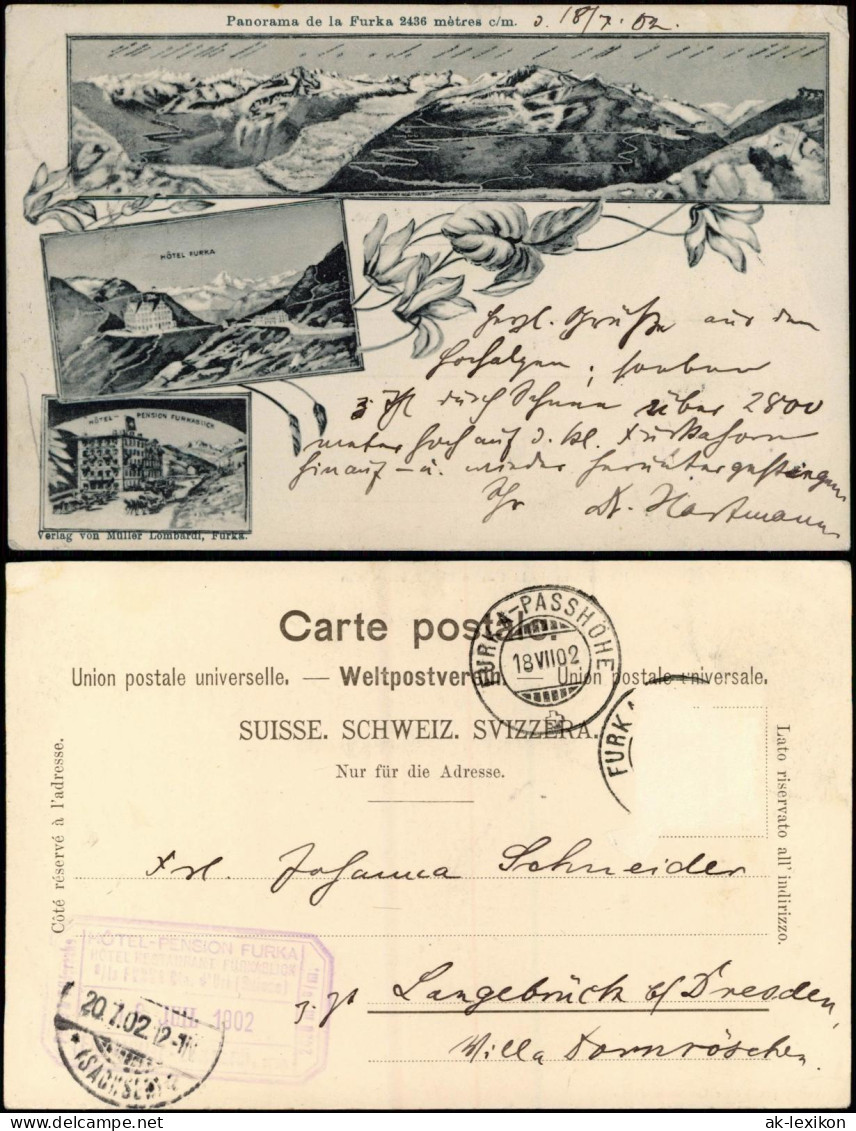 Panorama de la Furka 2436 mètres c/m. d. 18/7. 02.
HÔTEL FURKA
HÔTEL-PENSION FURKABLICK
Herzl. Grüße aus den
Hochalpen, soeben
z. Th. durch Schnee über 2800
meter hoch auf d. kl. Furkahorn
hinauf – u. wieder heruntergestiegen
Ihr Dr. Hartmann
Verlag von Müller Lombardi, Furka.
Carte postale.
FURKA-PASSHÖHE
18 VII 02
Union postale universelle. — Weltpostverein — Union postale universale.
FURKA
SUISSE. SCHWEIZ. SVIZZERA.
Nur für die Adresse.
Côté réservé à l'adresse.
Lato riservato all' indirizzo.
Frl. Johanna Schneider
HÔTEL-PENSION FURKA
HÔTEL RESTAURANT FURKABLICK
JUIL 1902
z. Zt. Langebrück b/ Dresden,
Villa Dornröschen.
20.7.02.12-1N
(SACHSEN)
ak-lexikon